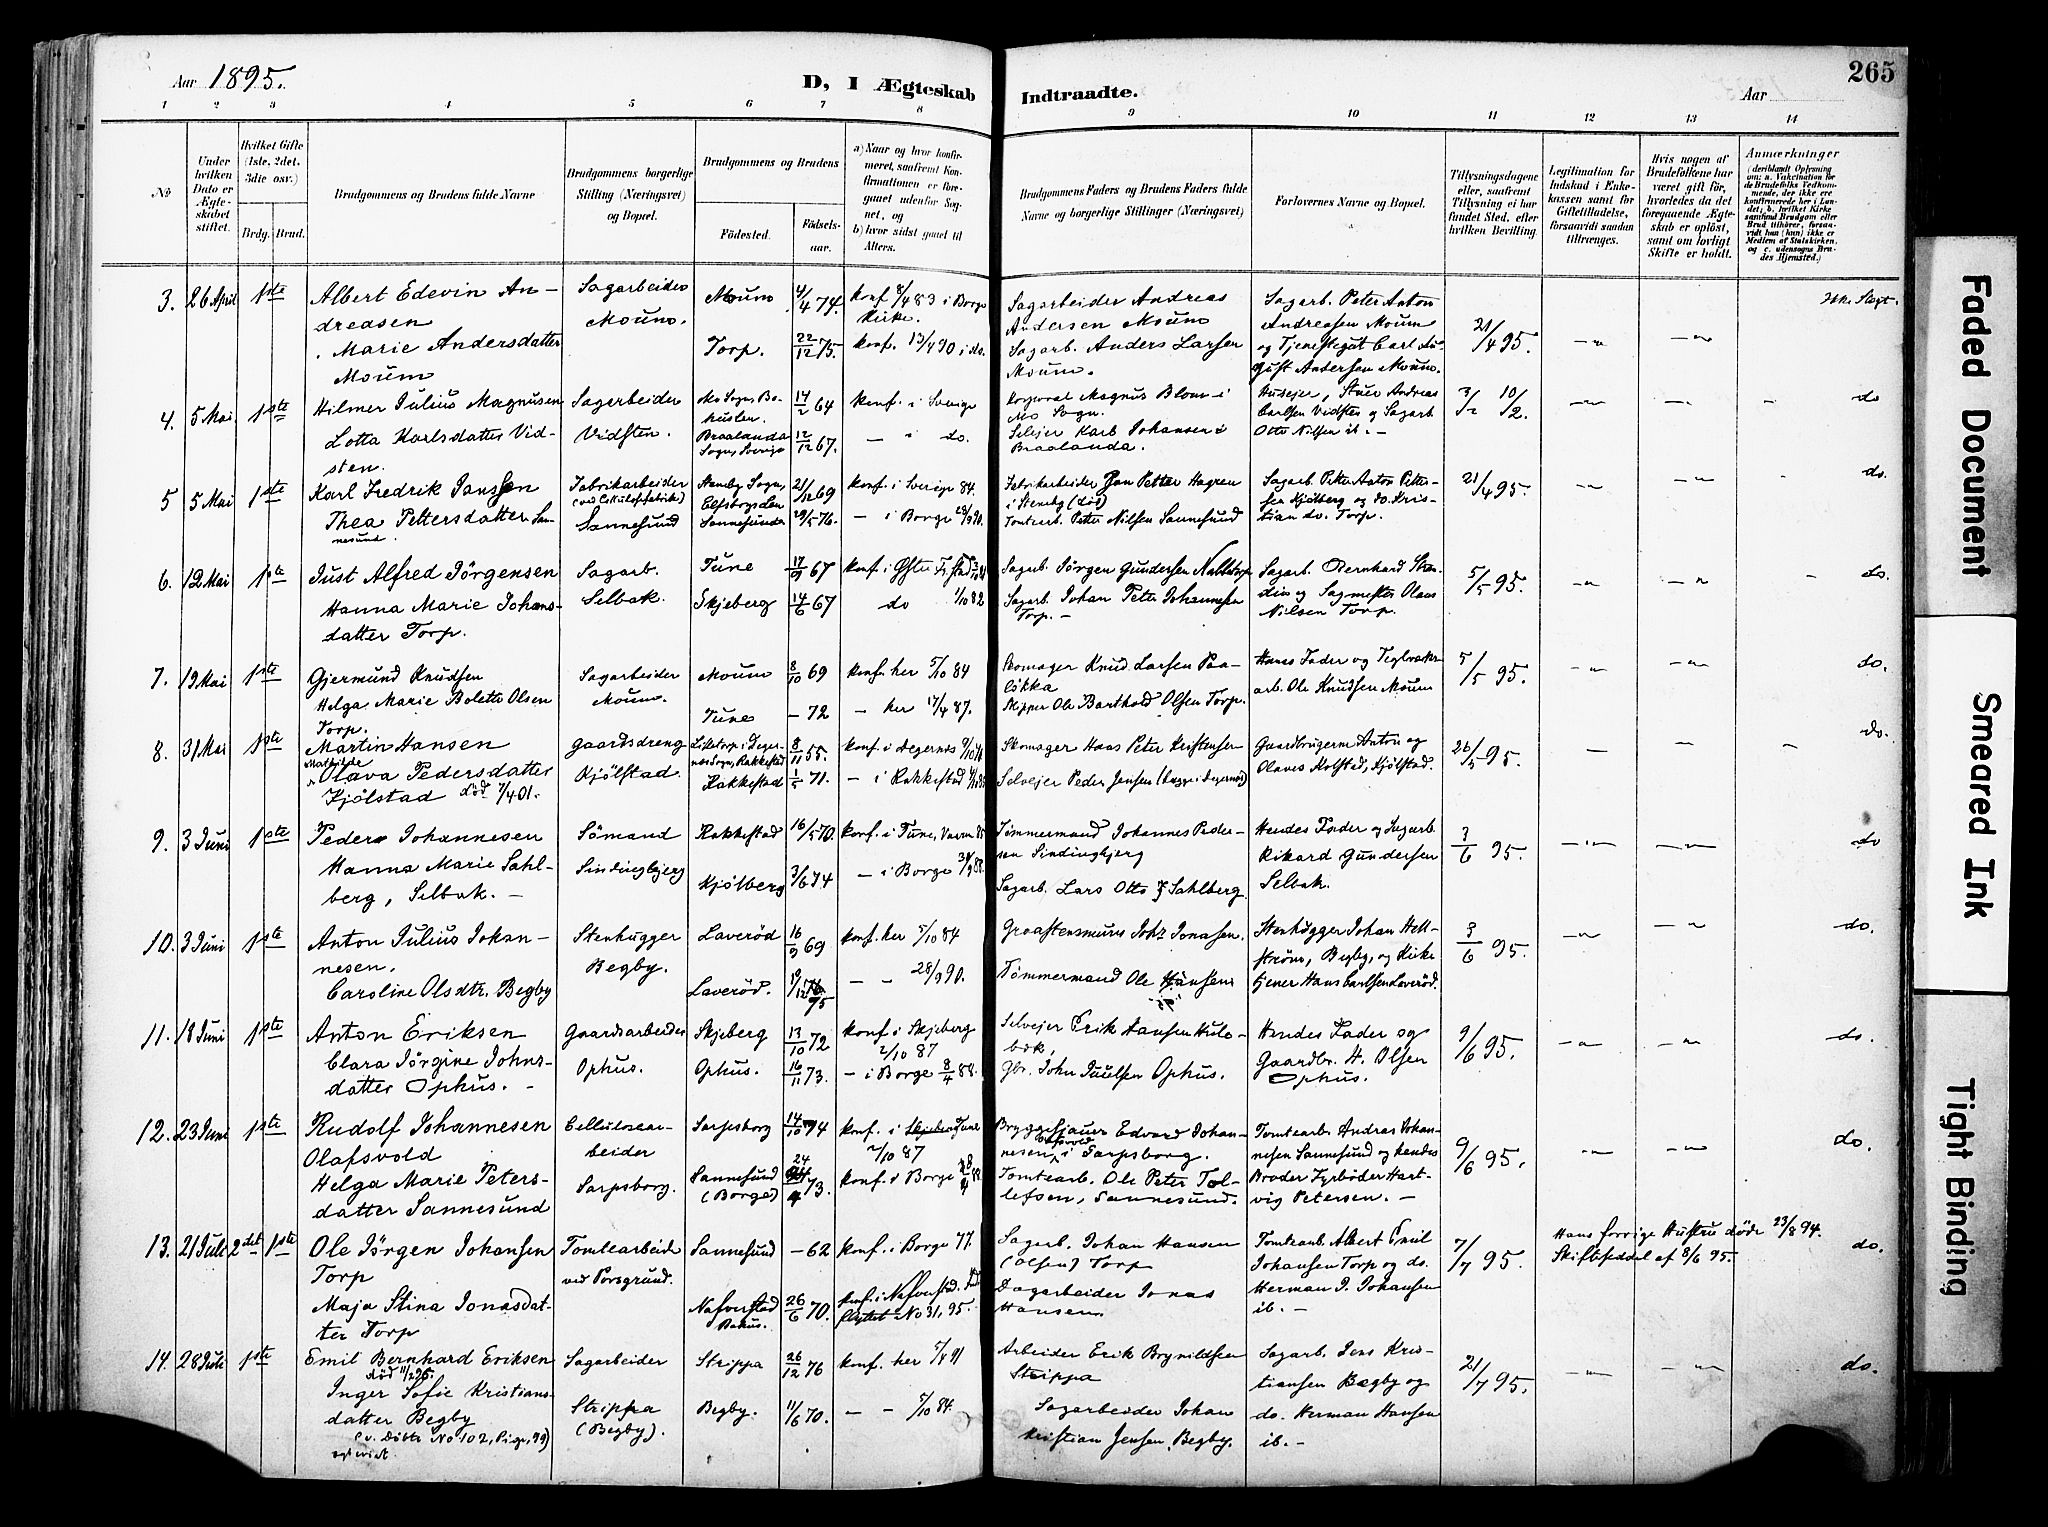 Aar 1895.
D, I Ægteskab Indtraadte.
Aar
265
1 2 3 4 5 6 7 8 9 10 11 12 13 14
No
Under hvilken Dato er Ægteskabet stiftet.
Hvilket Gifte (1ste, 2det, 3die osv.)
Brdg. Brud.
Brudgommens og Brudens fulde Navne
Brudgommens borgerlige Stilling (Næringsvei) og Bopæl.
Brudgommens og Brudens
Födested.
Födselsaar.
a) Naar og hvor konfirmeret, saafremt Konfirmationen er foregaaet udenfor Sognet, og
b) hvor sidst gaaet til Alters.
Brudgommens Faders og Brudens Faders fulde Navne og borgerlige Stillinger (Næringsvei)
Forlovernes Navne og Bopæl.
Tillysningsdagene eller, saafremt Tillysning ei har fundet Sted, efter hvilken Bevilling.
Legitimation for Indskud i Enkekassen samt for Giftetilladelse, forsaavidt saadan tiltrænges.
Hvis nogen af Brudefolkene har været gift för, hvorledes da det foregaaende Ægteskab er oplöst, samt om lovligt Skifte er holdt.
Anmærkninger
3. 26 April 1ste
Albert Edevin Andreasen
Marie Andersdatter Moum
Sagarbeider Moum.
Moum 4/4 74. konf 8/4 83 i Borge Kirke.
Torp. 22/12 75. konf. 13/4 90 i do.
Sagarbeider Andreas Andersen Moum
Sagarb. Anders Larsen Moum.
Sagarb. Peter Anton Andreasen Moum og Tjenestegut Carl August Andersen Moum.
21/4 95.
Ikke Slægt.
4. 5 Mai 1ste
Hilmer Julius Magnusen
Lotta Karlsdatter Vidsten.
Sagarbeider Vidsten.
Mo Sogn, Bohuslen 14/2 64 konf. i Sverige
Braalanda Sogn, Sverige 12/12 67. — i do.
Korporal Magnus Blom i Mo Sogn.
Selvejer Karl Johansen i Braalanda.
Husejer, Andreas Carlsen Vidsten og Sagarb Otto Nilsen ib. —
3/2 10/2.
do
5 5 Mai 1ste
Karl Fredrik Jansson
Thea Pettersdatter Sannesund.
Fabrikarbeider (ved Cellulosefabrik) Sannesund
Elfsborgs Len 21/12 69 konf. i Sverige 84.
Sannesund 29/5 76. — i Borge 28/9 90.
Fabrikarbeider Jan Petter Hagren i Steneby (död)
Tomtearb. Peter Nilsen Sannesund
Sagarb. Petter Anton Pettersen Kjölberg og do. Kristian do. Torp.
21/4 95.
do.
6. 12 Mai 1ste
Just Alfred Jörgensen
Hanna Marie Johansdatter Torp.
Sagarb. Selbak.
Tune 17/9 67
Skjeberg 14/6 67 do 1/10 82
Sagarb. Jörgen Gundersen
Sagarb. Johan Peter Johannesen Torp. —
Sagarb. Bernhard og Sagmester Olaus Nilsen Torp.
5/5 95.
do.
7. 19 Mai 1ste
Gjermund Knudsen
Helga Marie Bolette Olsen Torp.
Sagarbeider Moum.
Moum 8/10 69 konf. her 5/10 84
Tune — 72 — her 17/4 87.
Skomager Knud Larsen Paalökka
Skipper Ole Barthold Olsen Torp.
Hans Fader og Teglværksarb. Ole Knudsen Moum
5/5 95.
do.
8. 31 Mai 1ste
Martin Hansen
Mathilde Olava Pedersdatter Kjölstad död 7/4 01.
Gaardsdreng Kjölstad.
Lilletorp i Degernes Sogn, Rakkestad 8/11 55. konf. i Degernes
Rakkestad 1/5 71. — i Rakkestad
Skomager Hans Peter Kristensen
Selvejer Peder Jensen
Gaardbrugerne Anton og Olaves Kolstad, Kjölstad.
26/5 95.
do.
9. 3 Juni 1ste
Peder Johannesen
Hanna Marie Sahlberg, Selbak. —
Sömand Sindingbjerg
Rakkestad 16/5 70. konf. i Tune,
Kjölberg 3/6 74 — i Borge
Tömmermand Johannes Pedersen Sindingbjerg
Sagarb. Lars Otto J Sahlberg
Hendes Fader og Sagarb. Rikard Gundersen Selbak.
3/6 95.
do
10. 3 Juni 1ste
Anton Julius Johannesen.
Caroline Olsdtr. Begby
Stenhugger Begby.
Laveröd 16/9 69 konf. her 5/10 84
Laveröd. 19/12 75 — — 28/9 90.
Graastensmurer Johs Jonasen.
Tömmermand Ole Hansen
Stenhugger Johan Hellström, Begby, og Kirketjener Hans Carlsen Laveröd.
3/6 95.
do.
11. 18 Juni 1ste
Anton Eriksen
Clara Jörgine Johnsdatter Ophus. —
Gaardsarbeider Ophus.
Skjeberg 13/10 72 konf. i Skjeberg 2/10 87
Ophus. 16/11 73. — i Borge 8/4 88.
Selvejer Erik Hansen Hulebæk,
Gbr. John Paulsen Ophus.
Hendes Fader og Gaardbr. H. Olsen Ophus.
9/6 95.
do.
12. 23 Juni 1ste
Rudolf Johannesen Olafsvold
Helga Marie Petersdatter Sannesund
Cellulosearbeider Sarpsborg.
Sarpsborg 14/10 74 konf. i Tune 2/10 87
Sannesund (Borge) 24/4 73. konf. i Borge
Bryggesjauer Edvard Johannesen Olafsvold i Sarpsborg.
Tomtearb. Ole Peter Tollefsen, Sannesund.
Tomtearb. Andreas Johannesen Sannesund og hendes Broder Fyrböder Hartvig Petersen. —
9/6 95.
do.
13. 21 Juli 2det 1ste
Ole Jörgen Johansen Torp
Maja Stina Jonasdatter Torp
Tomtearbeider ved Porsgrund.
Sannesund — 62 konf. i Borge 77.
Nafverstad Bohus. 26/6 70. konf. i Nafverstad. flyttet No 31, 95.
Sagarb. Johan Hansen (Olsen) Torp
Dagarbeider Jonas Hansen
Tomtearb. Albert Emil Johansen Torp og do. Herman J. Johansen ib. —
7/7 95.
Hans forrige Hustru döde 23/8 94. Skifteseddel af 8/6 95.
do.
14. 28 Juli 1ste
Emil Bernhard Eriksen
död 11/2 96.
Inger Sofie Kristiansdatter Begby
(v. Döbte No 102, Piger, 99)
Sagarbeider Strippa (Begby).
Strippa 26/12 76 konf. her 5/4 91
Begby. 11/6 70. — — 5/10 84.
Arbeider Erik Brynildsen Strippa
Sagarbeider Johan Kristian Jensen, Begby.
Sagarb. Jens Kristiansen Begby og do. Herman Hansen ib. —
21/7 95.
do.
Faded Document
Smeared Ink
Tight Binding